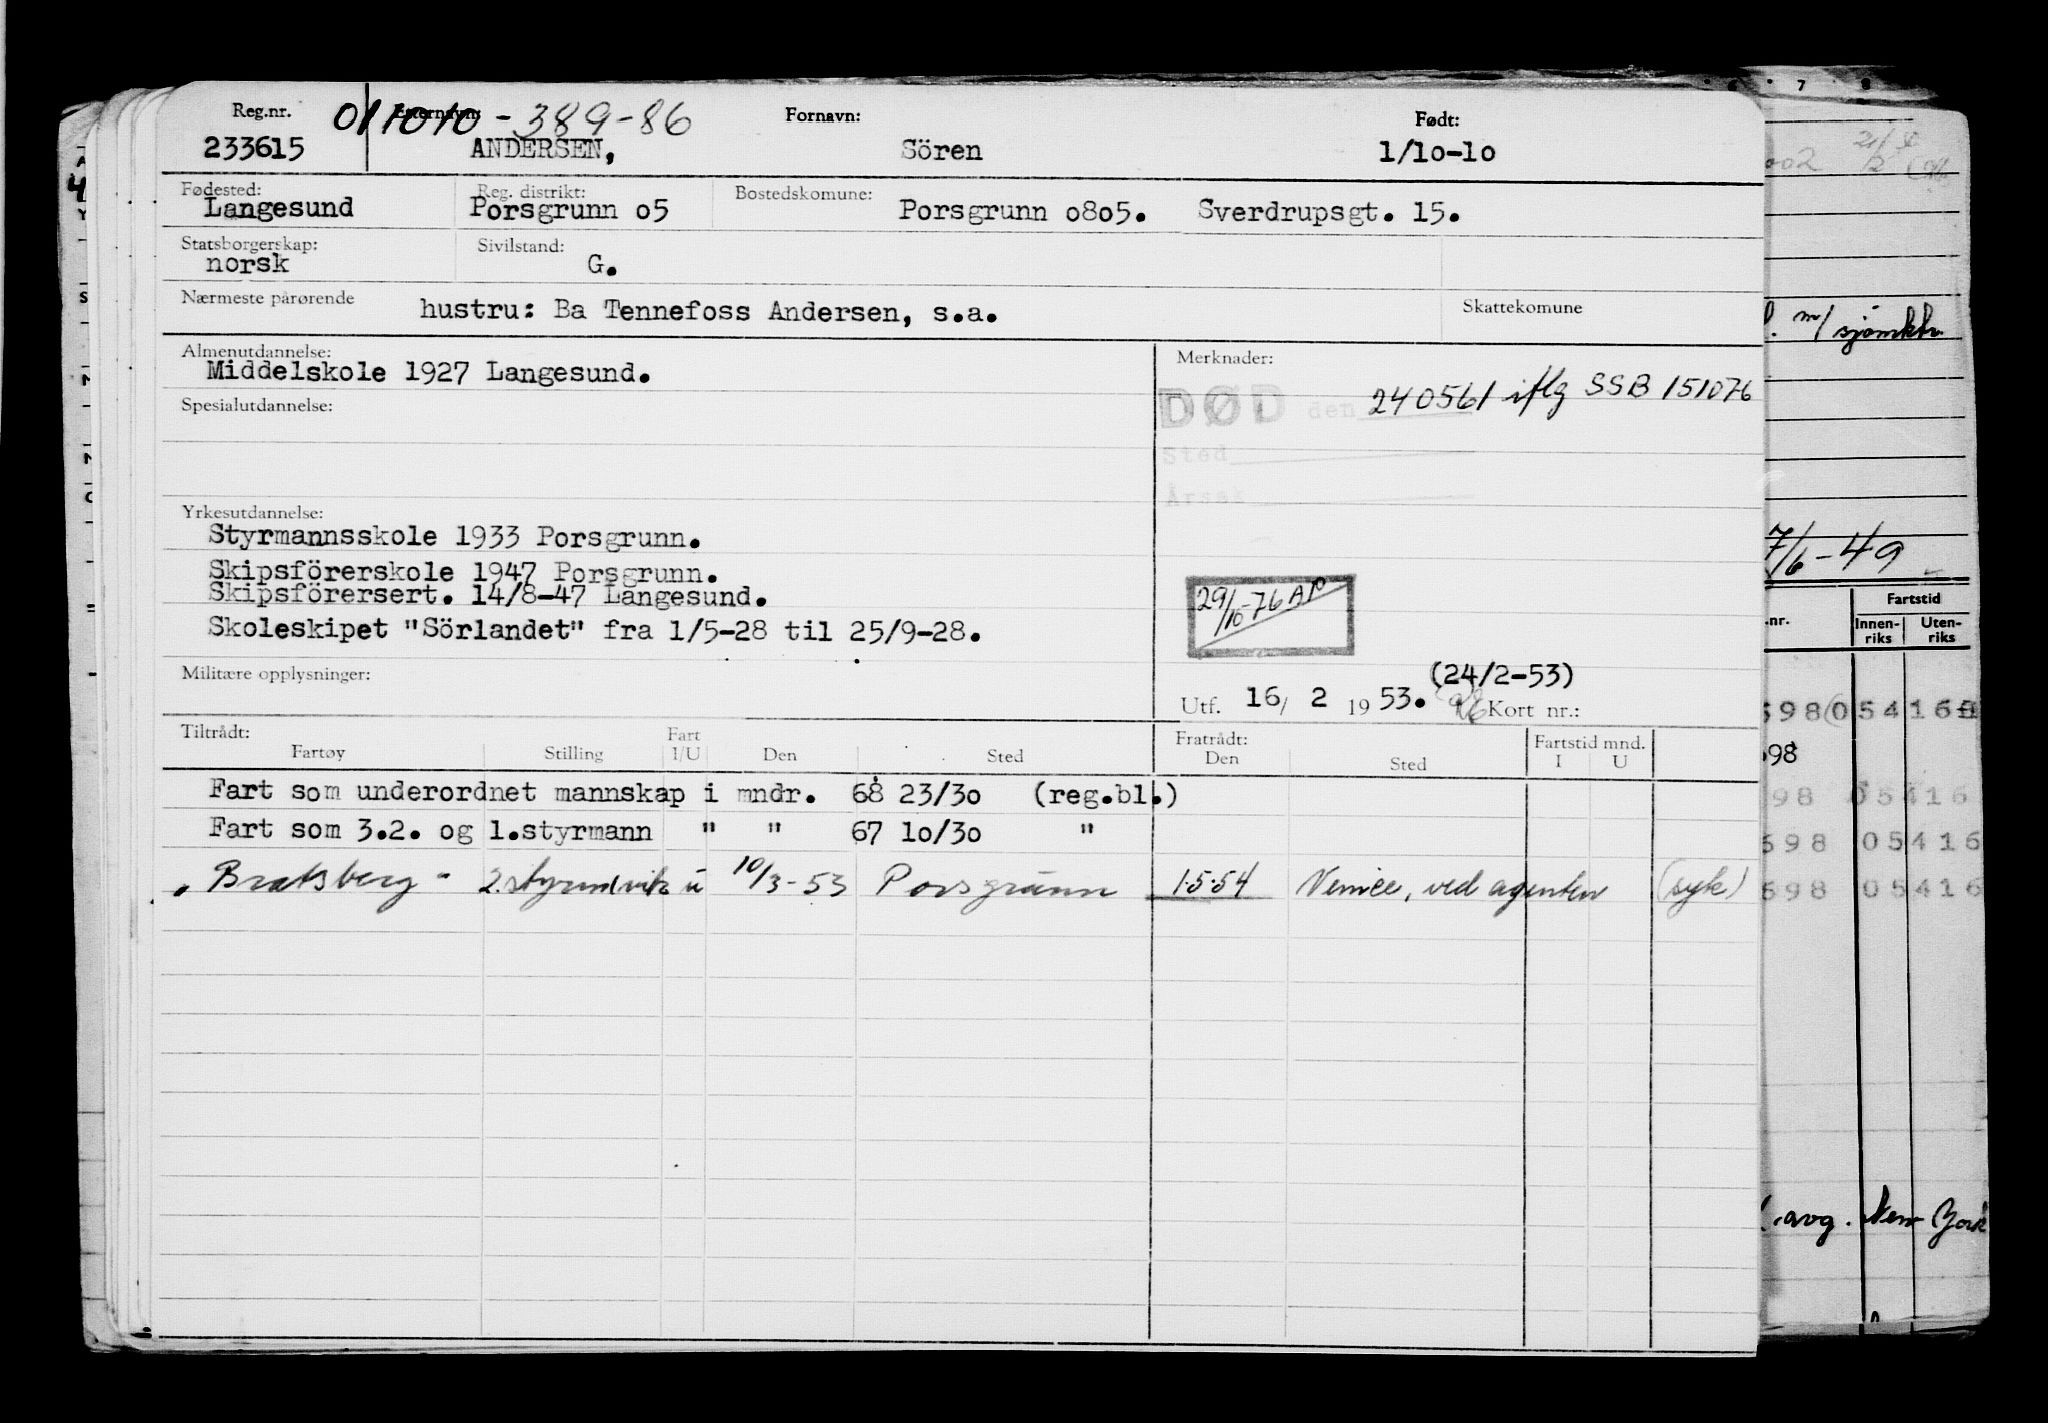 Reg.nr. Etternavn: Fornavn: Født:
011010-38986
233615 ANDERSEN, Sören 1/10-10
Fødested: Reg. distrikt: Bostedskomune:
Langesund Porsgrunn o5 Porsgrunn o8o5. Sverdrupsgt. 15.
Statsborgerskap: Sivilstand:
norsk G.
Nærmeste pårørende hustru: Ba Tennefoss Andersen, s.a. Skattekomune
Almenutdannelse: Merknader:
Middelskole 1927 Langesund.
Spesialutdannelse:
DØD den 240561 iflg SSB 151076
Sted
Årsak
Yrkesutdannelse:
Styrmannsskole 1933 Porsgrunn.
Skipsförerskole 1947 Porsgrunn.
Skipsförersert. 14/8-47 Langesund.
Skoleskipet "Sörlandet" fra 1/5-28 til 25/9-28.
29/10-76 AP
Militære opplysninger:
(24/2-53)
Utf. 16/ 2 1953. Kort nr.:
Tiltrådt: Fart Fratrådt: Fartstid mnd.
Fartøy Stilling I/U Den Sted Den Sted I U
Fart som underordnet mannskap i mndr. 68 23/3o (reg.bl.)
Fart som 3.2. og 1.styrmann " " 67 1o/3o "
"Bratsberg" 2.styrm/vik u 10/3-53 Porsgrunn 1.5.54 Venice, ved agenten (syk)
7
002
m/ sjömktr.
7/6-49
Fartstid
.nr. Innen-riks Uten-riks
698 05416
698
698 05416
698 05416
698 05416
avg. New York